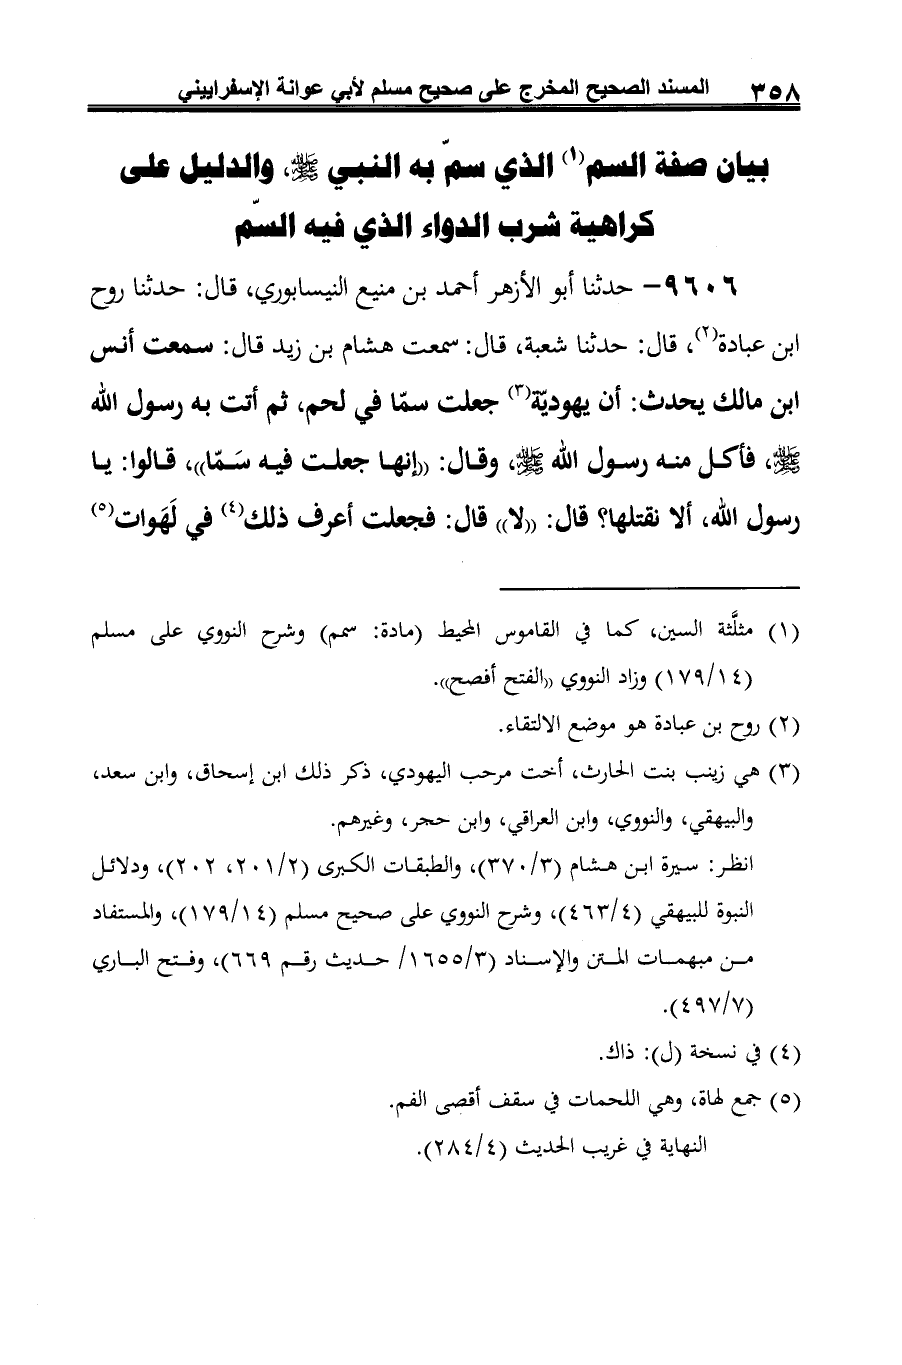 ٣٥٨ المسند الصحيح المخرج على صحيح مسلم لأبي عوانة الإسفراييني
بيان صفة السم(١) الذي سمّ به النبي ﷺ، والدليل على
كراهية شرب الدواء الذي فيه السّم
٩٦٠٦- حدثنا أبو الأزهر أحمد بن منيع النيسابوري، قال: حدثنا روح
ابن عبادة(٢)، قال: حدثنا شعبة، قال: سمعت هشام بن زيد قال: سمعت أنس
ابن مالك يحدث: أن يهوديّة(٣) جعلت سمّا في لحم، ثم أتت به رسول الله
ﷺ، فأكل منه رسول الله ﷺ، وقال: ((إنها جعلت فيه سَمّا))، قالوا: يا
رسول الله، ألا نقتلها؟ قال: ((لا)) قال: فجعلت أعرف ذلك(٤) في لَهَوات(٥)
(١) مثلَّثة السين، كما في القاموس المحيط (مادة: سمم) وشرح النووي على مسلم
(١٧٩/١٤) وزاد النووي ((الفتح أفصح)).
(٢) روح بن عبادة هو موضع الالتقاء.
(٣) هي زينب بنت الحارث، أخت مرحب اليهودي، ذكر ذلك ابن إسحاق، وابن سعد،
والبيهقي، والنووي، وابن العراقي، وابن حجر، وغيرهم.
انظر: سيرة ابن هشام (٣٧٠/٣)، والطبقات الكبرى (٢٠١/٢، ٢٠٢)، ودلائل
النبوة للبيهقي (٤٦٣/٤)، وشرح النووي على صحيح مسلم (١٧٩/١٤)، والمستفاد
من مبهمات المتن والإسناد (١٦٥٥/٣/ حديث رقم ٦٦٩)، وفتح الباري
(٤٩٧/٧).
(٤) في نسخة (ل): ذاك.
(٥) جمع لهاة، وهي اللحمات في سقف أقصى الفم.
النهاية في غريب الحديث (٢٨٤/٤).